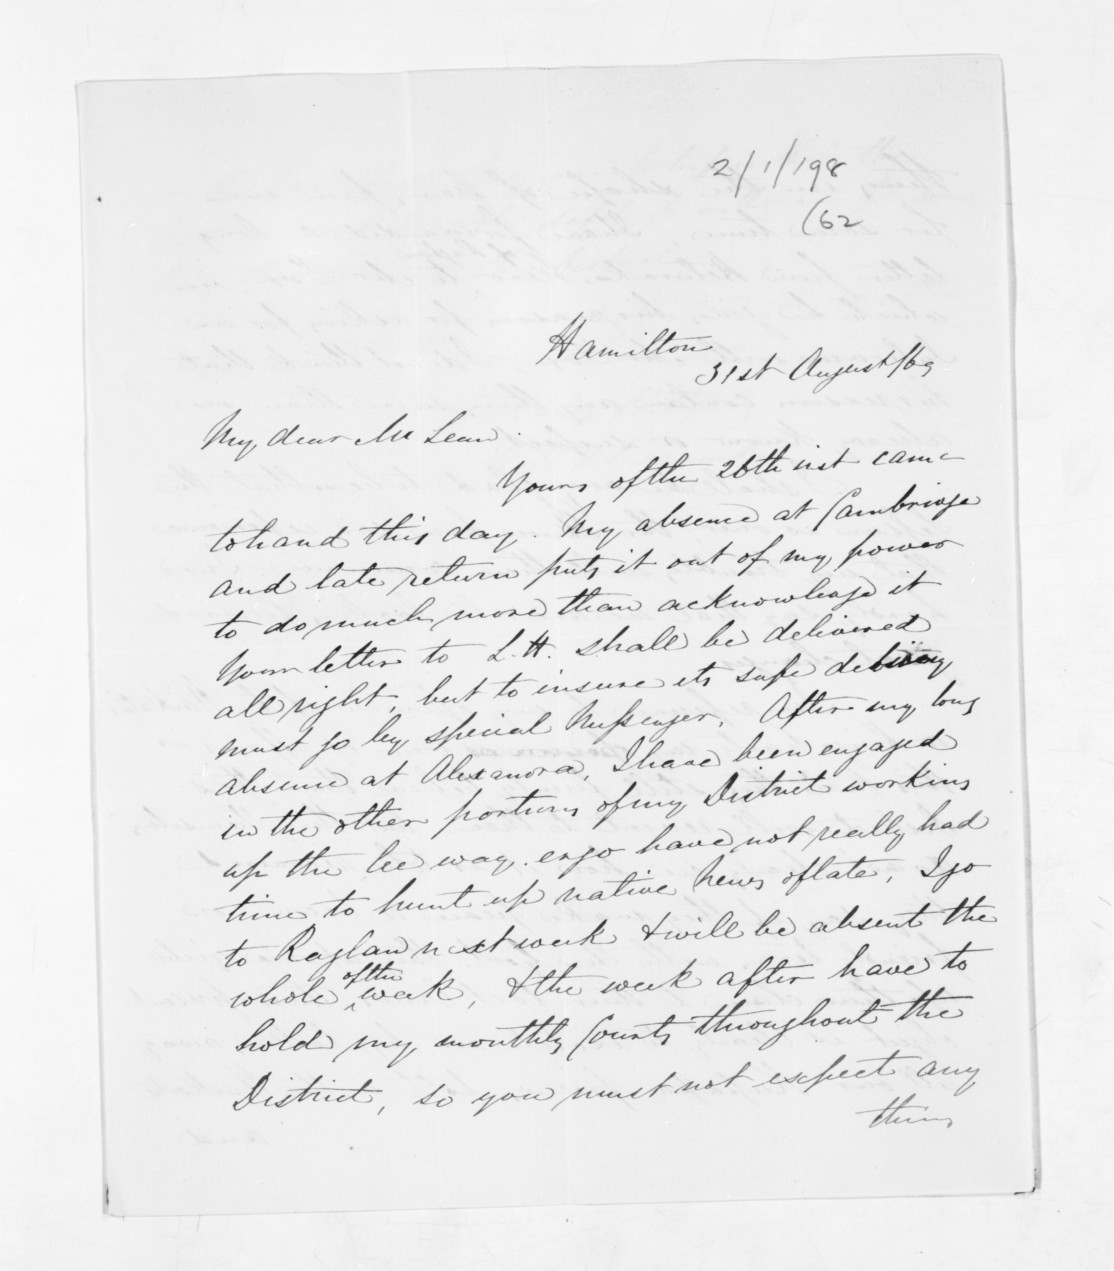 2/1/198
(62
Hamilton
31st August/69
My dear McLean.
Yours of the 26th inst came
to hand this day. My absence at Cambridge
and late return puts it out of my power
to do much more than acknowledge it
Your letter to L.H. shall be delivered
all right, but to insure its safe delivery
must go by special Messenger. After my long
absence at Alexandra, I have been engaged
in the other portions of my District working
up the lee way. ergo have not really had
time to hunt up native news of late, I go
to Raglan next week & will be absent the
whole of the week, & the week after have to
hold my monthly Courts throughout the
District, so you must not expect any
thing